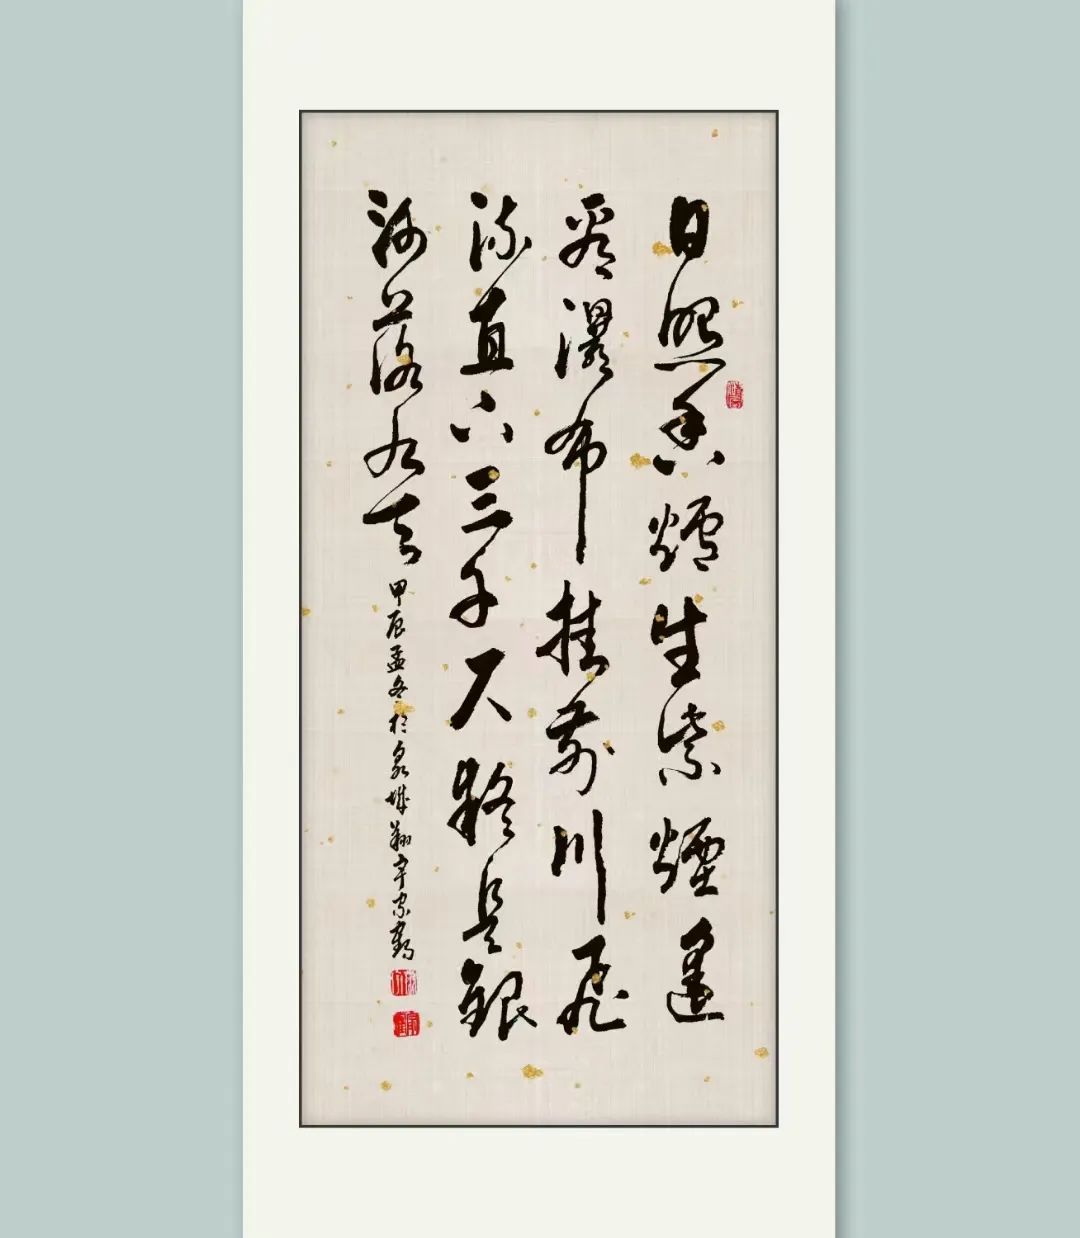 日照香爐生紫煙遙
看瀑布挂前川飛
流直下三千尺疑是銀
河落九天
甲辰孟冬於泉城翔宇